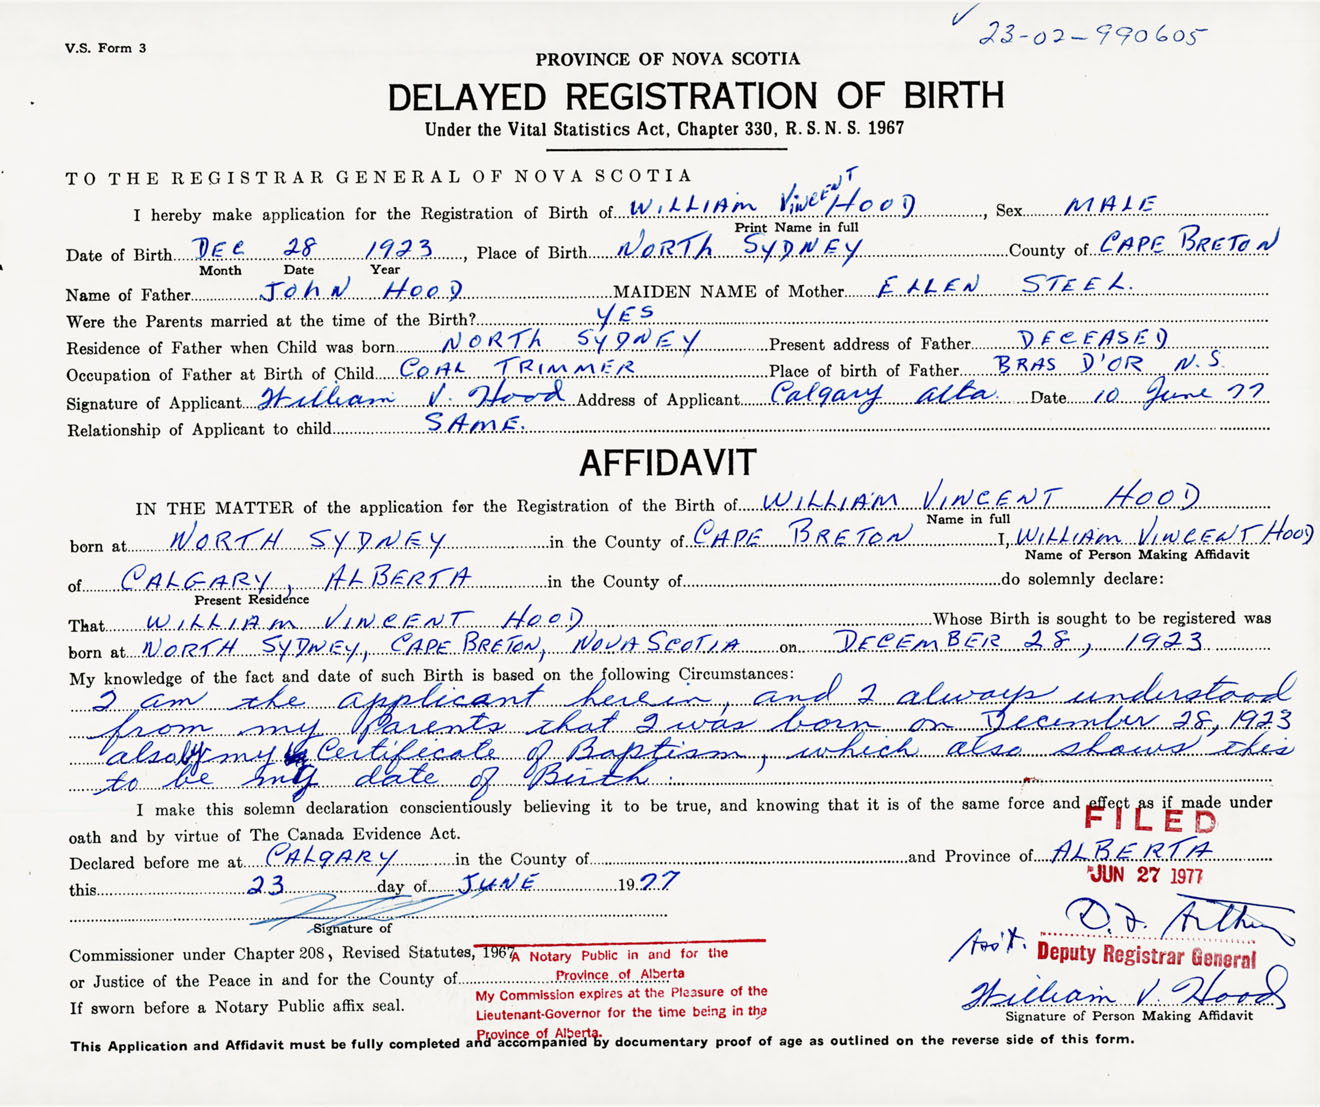 23-02-990605
V.S. Form 3
PROVINCE OF NOVA SCOTIA
DELAYED REGISTRATION OF BIRTH
Under the Vital Statistics Act, Chapter 330, R.S.N.S. 1967
TO THE REGISTRAR GENERAL OF NOVA SCOTIA
I hereby make application for the Registration of Birth of WILLIAM VINCENT HOOD, Sex MALE
Print Name in full
Date of Birth DEC 28 1923, Place of Birth NORTH SYDNEY County of CAPE BRETON
Month Date Year
Name of Father JOHN HOOD MAIDEN NAME of Mother ELLEN STEEL.
Were the Parents married at the time of the Birth? YES
Residence of Father when Child was born NORTH SYDNEY Present address of Father DECEASED
Occupation of Father at Birth of Child COAL TRIMMER Place of birth of Father BRAS D'OR N.S.
Signature of Applicant William V. Hood Address of Applicant Calgary alta. Date 10 June 77
Relationship of Applicant to child SAME.
AFFIDAVIT
IN THE MATTER of the application for the Registration of the Birth of WILLIAM VINCENT HOOD
Name in full
born at NORTH SYDNEY in the County of CAPE BRETON I, WILLIAM VINCENT HOOD
Name of Person Making Affidavit
of CALGARY, ALBERTA in the County of do solemnly declare:
Present Residence
That WILLIAM VINCENT HOOD Whose Birth is sought to be registered was
born at NORTH SYDNEY, CAPE BRETON, NOVA SCOTIA on DECEMBER 28, 1923
My knowledge of the fact and date of such Birth is based on the following Circumstances:
I am the applicant herein, and I always understood
from my Parents that I was born on December 28, 1923
also by my Certificate of Baptism, which also shows this
to be my date of Birth.
I make this solemn declaration conscientiously believing it to be true, and knowing that it is of the same force and effect as if made under
oath and by virtue of The Canada Evidence Act.
FILED
Declared before me at CALGARY in the County of and Province of ALBERTA
JUN 27 1977
this 23 day of JUNE 1977
Signature of
D. F. Arthur
Ass't. Deputy Registrar General
Commissioner under Chapter 208, Revised Statutes, 1967
or Justice of the Peace in and for the County of
If sworn before a Notary Public affix seal.
A Notary Public in and for the
Province of Alberta
My Commission expires at the Pleasure of the
Lieutenant-Governor for the time being in the
Province of Alberta.
William V. Hood
Signature of Person Making Affidavit
This Application and Affidavit must be fully completed and accompanied by documentary proof of age as outlined on the reverse side of this form.